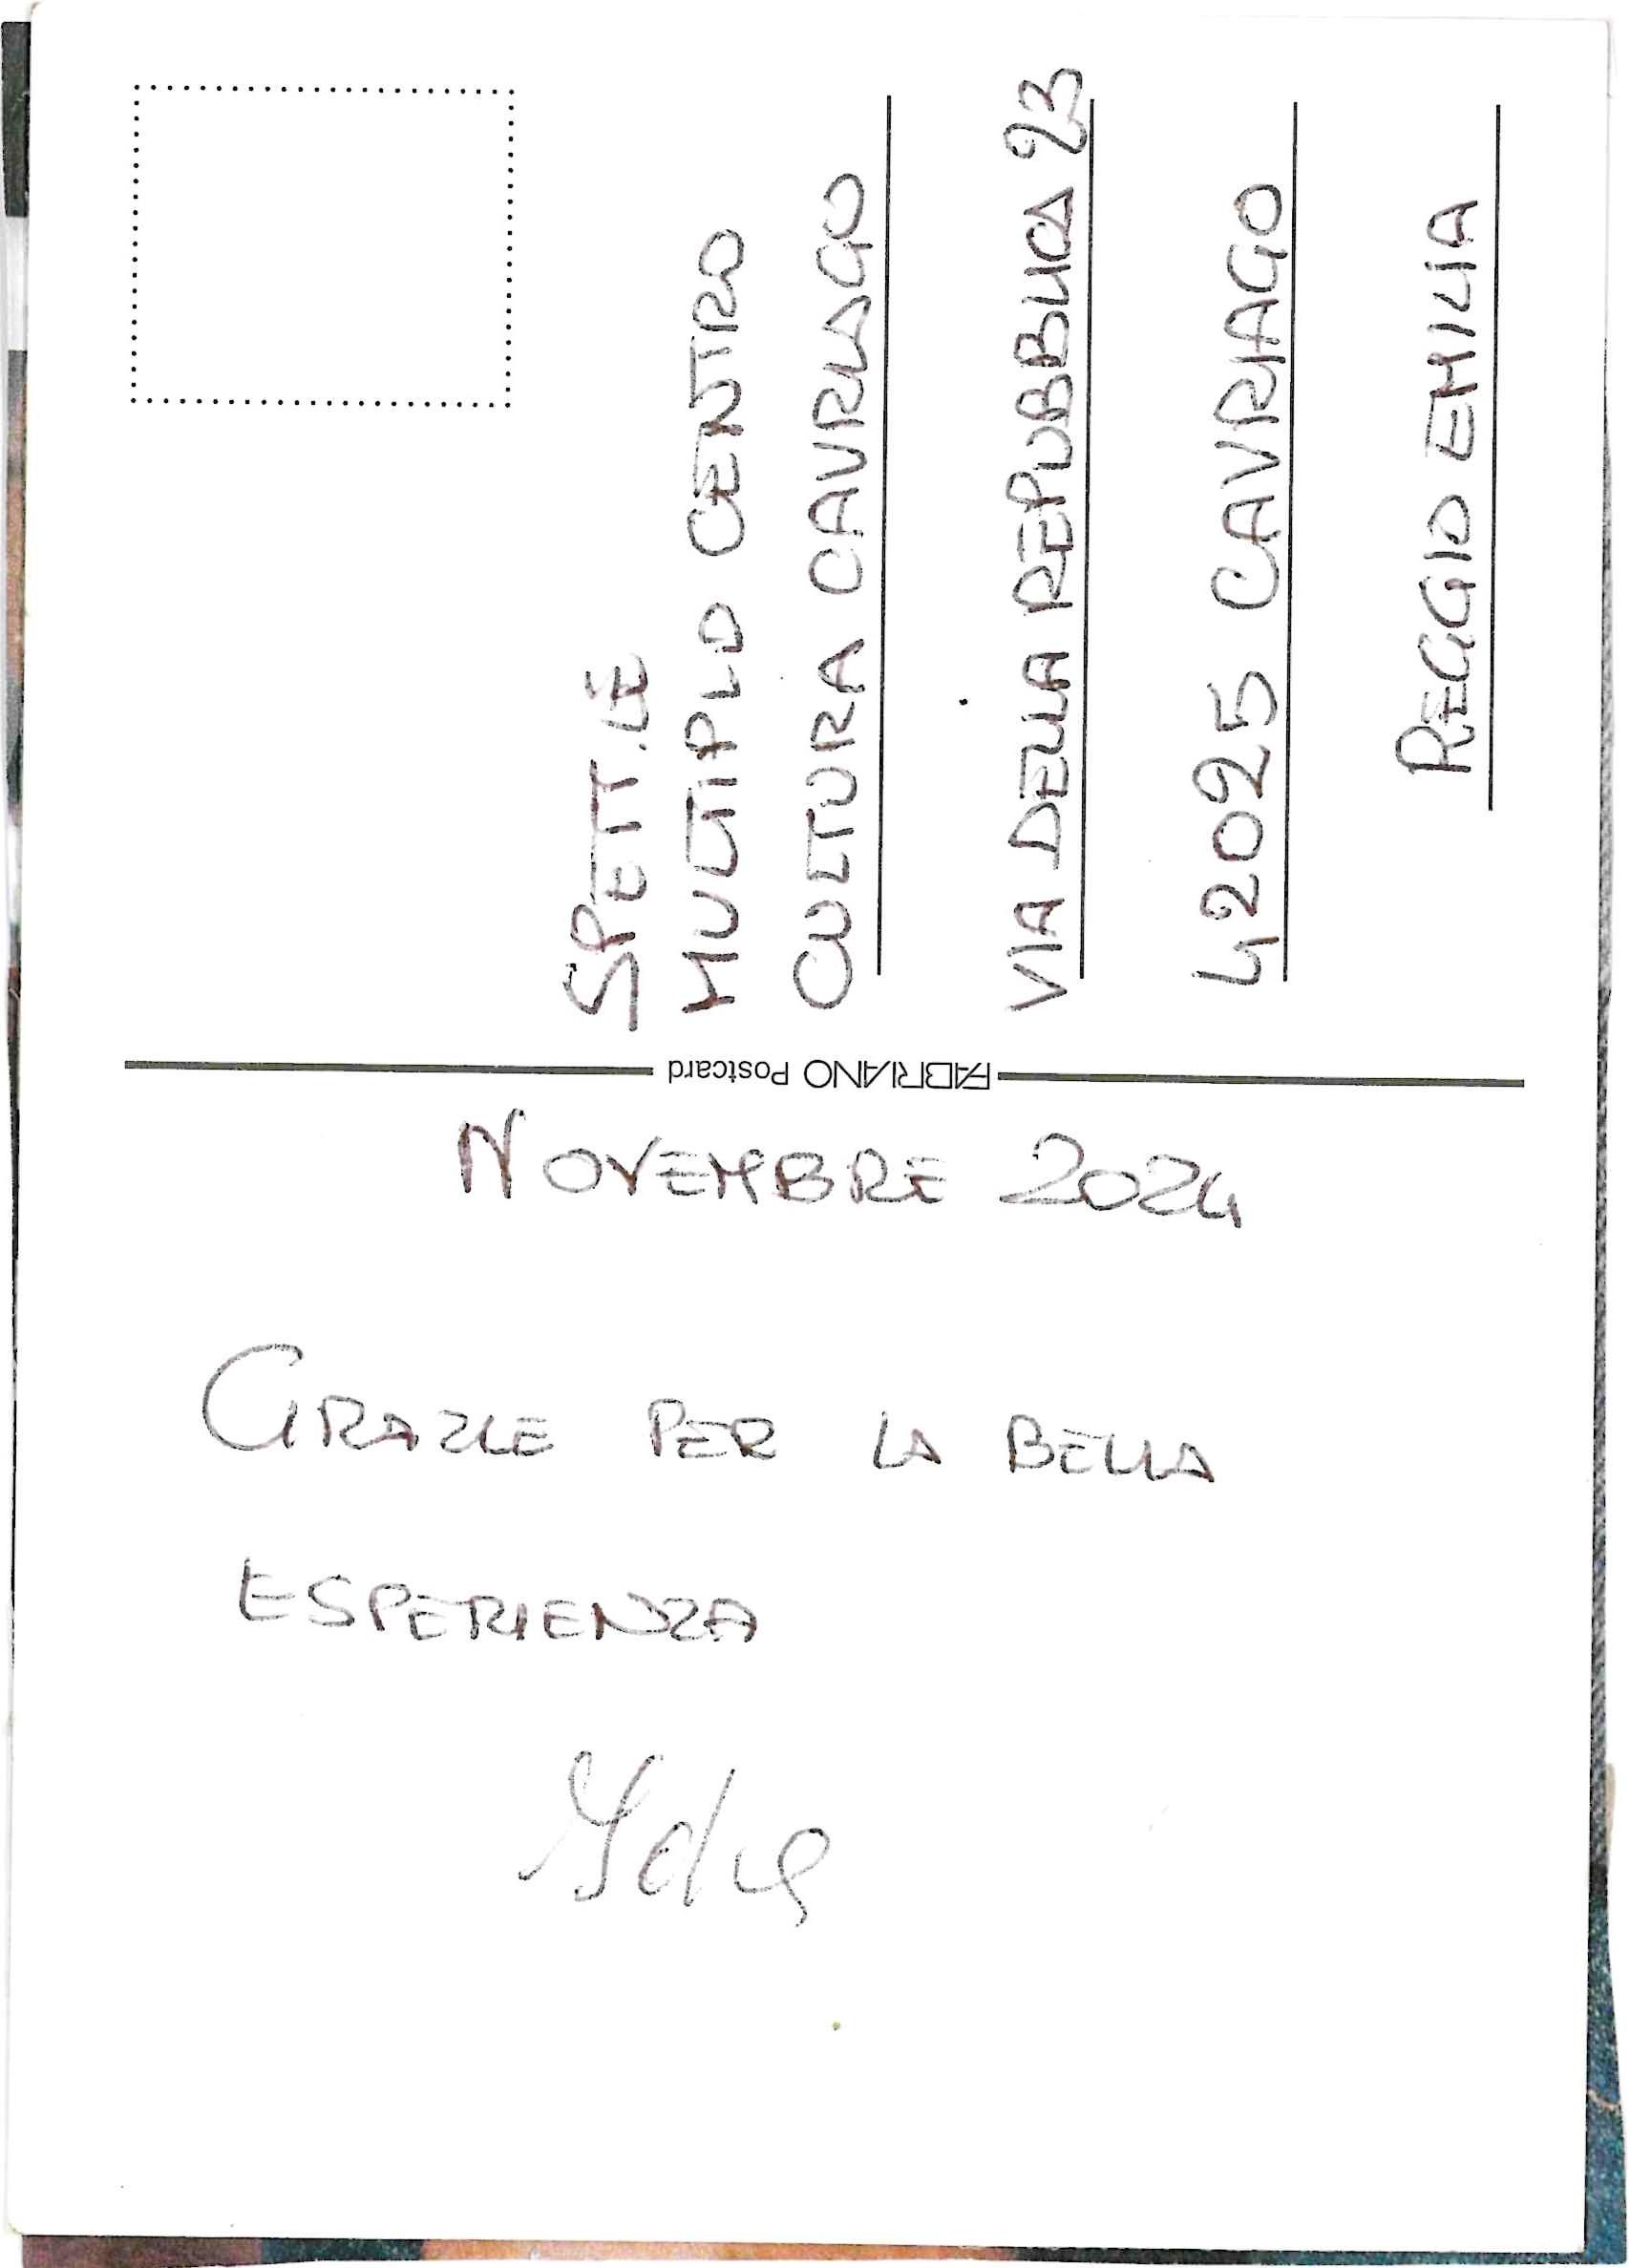 SPETT.LE
MULTIPLO CENTRO
CULTURA CAVRIAGO
VIA DELLA REPUBBLICA 23
42025 CAVRIAGO
REGGIO EMILIA
FABRIANO Postcard
NOVEMBRE 2024
GRAZIE PER LA BELLA
ESPERIENZA